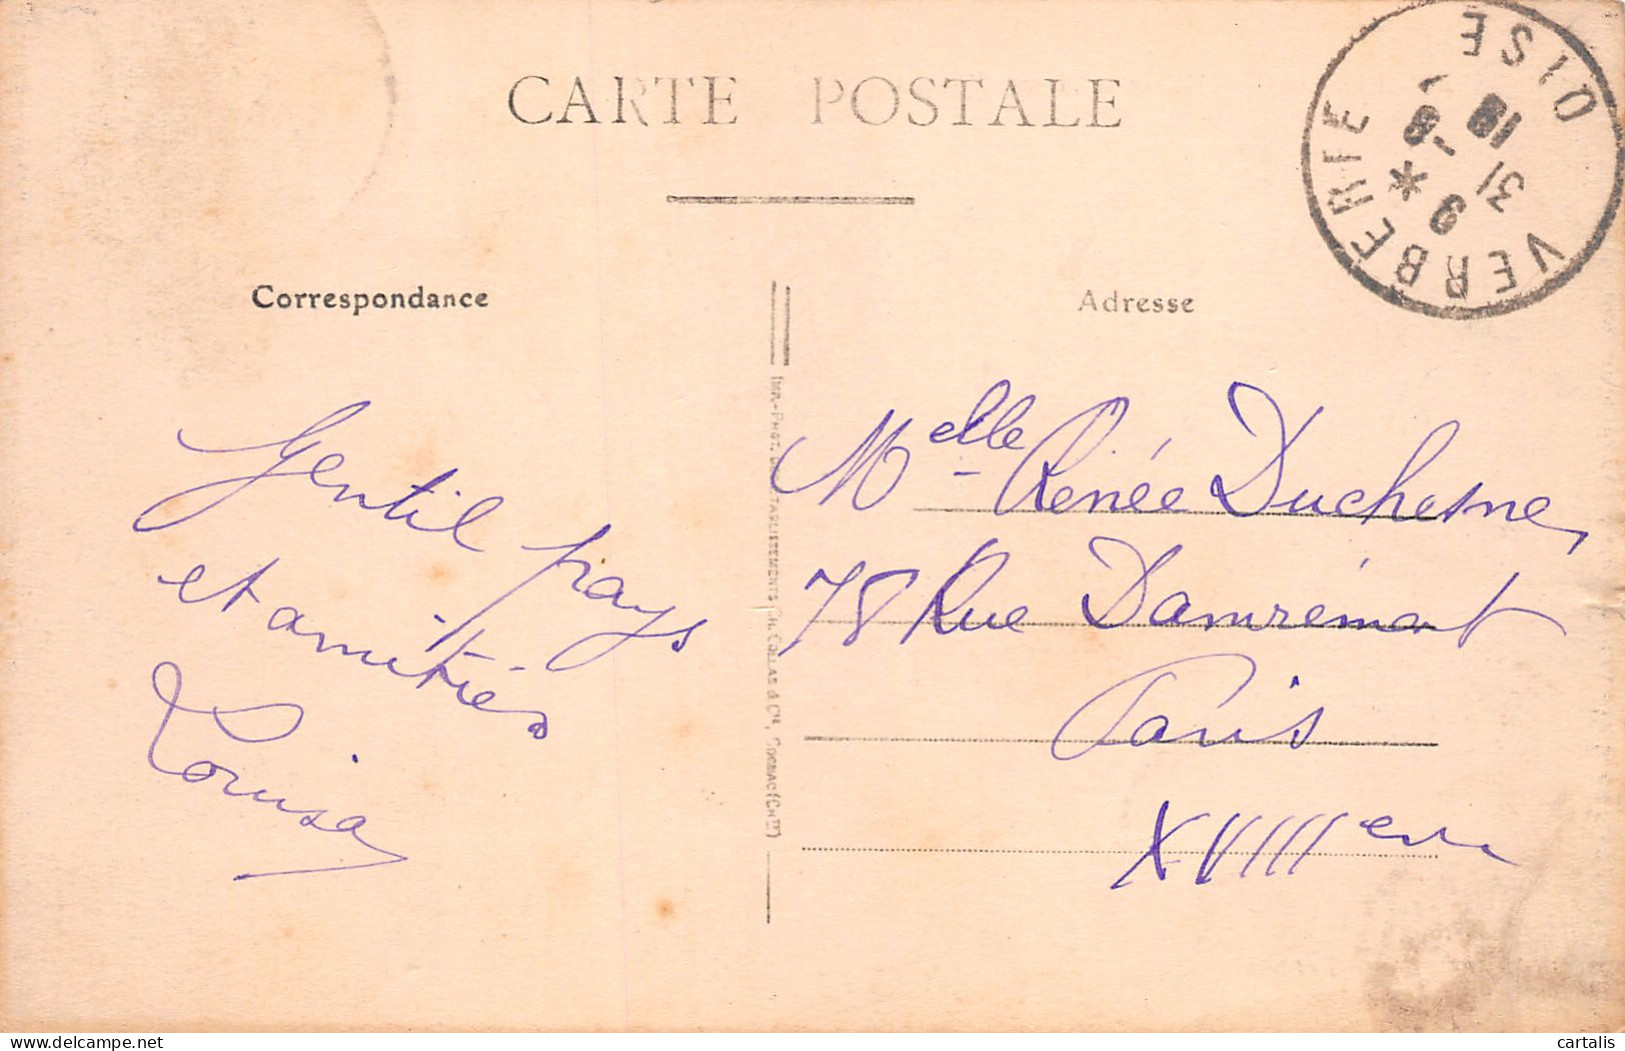 CARTE POSTALE
VERBERIE OISE
18
31 -8
9
Correspondance
Adresse
Gentil pays
et amitiés
Louisa
IMP.-PHOT. DES ETABLISSEMENTS CH. COLLAS & Cie, COGNAC (Chte)
Melle Renée Duchesne,
78 Rue Damrémont
Paris
XVIIIeme
delcampe.net
cartalis